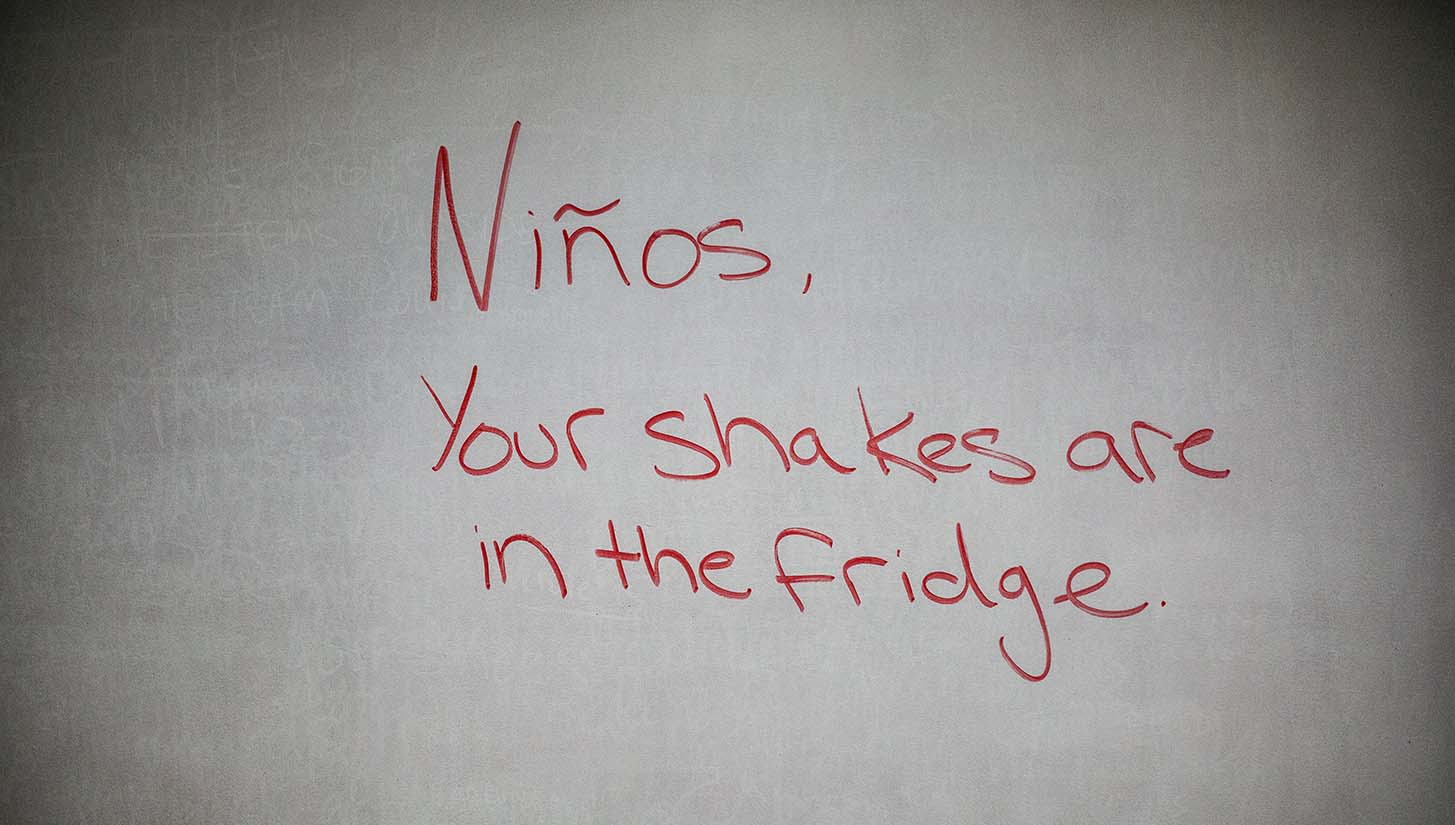 Niños,
Your shakes are
in the fridge.